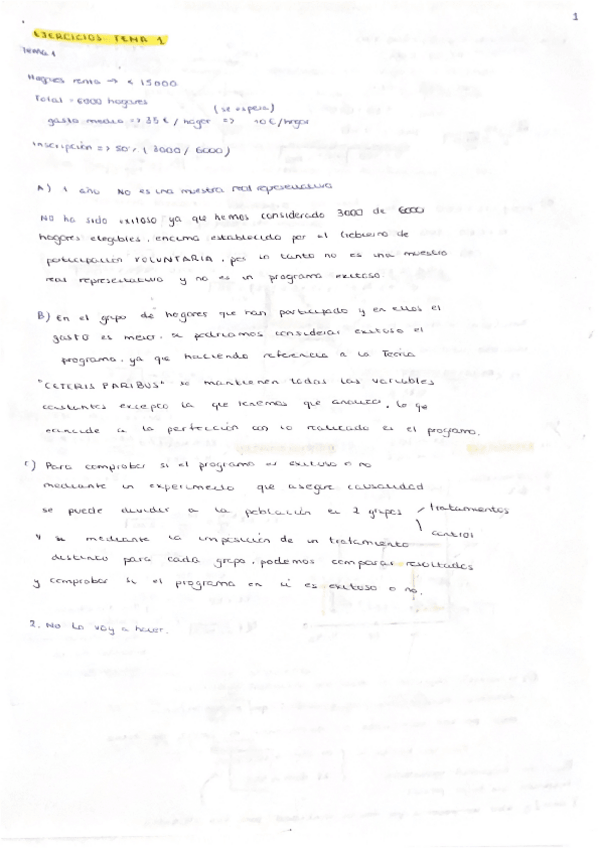 1
EJERCICIOS TEMA 1
Tema 1
Hogares renta → < 15000
Total = 6000 hogares (se espera)
gasto medio => 35 € / hogar => 10 € / hogar
Inscripción => 50% ( 3000 / 6000 )
A) 1 año No es una muestra real representativa
No ha sido exitoso ya que hemos considerado 3000 de 6000
hogares elegibles, encima establecido por el Gobierno de
participación VOLUNTARIA, por lo tanto no es una muestra
real representativa y no es un programa exitoso.
B) En el grupo de hogares que han participado y en ellos el
gasto es menor, si podríamos considerar exitoso el
programa, ya que haciendo referencia a la Teoría
"CETERIS PARIBUS" se mantienen todas las variables
constantes excepto la que tenemos que analizar, lo que
coincide a la perfección con lo realizado es el programa.
C) Para comprobar si el programa es exitoso o no
mediante un experimento que asegure causalidad
se puede dividir a la población en 2 grupos / tratamientos
\ control
y mediante la imposición de un tratamiento
distinto para cada grupo, podemos comparar resultados
y comprobar si el programa en sí es exitoso o no.
2. No lo voy a hacer.